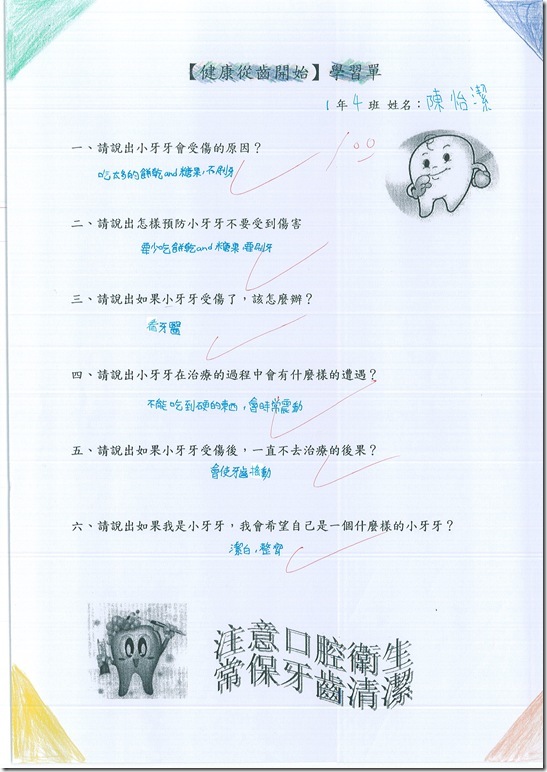 【健康從齒開始】學習單
1年4班 姓名：陳怡潔
100
一、請說出小牙牙會受傷的原因？
吃太多的餅乾and糖果，不刷牙
二、請說出怎樣預防小牙牙不要受到傷害
要少吃餅乾and糖果，要刷牙
三、請說出如果小牙牙受傷了，該怎麼辦？
看牙醫
四、請說出小牙牙在治療的過程中會有什麼樣的遭遇？
不能吃到硬的東西，會時常震動
五、請說出如果小牙牙受傷後，一直不去治療的後果？
會使牙齒搖動
六、請說出如果我是小牙牙，我會希望自己是一個什麼樣的小牙牙？
潔白，整齊
注意口腔衛生
常保牙齒清潔